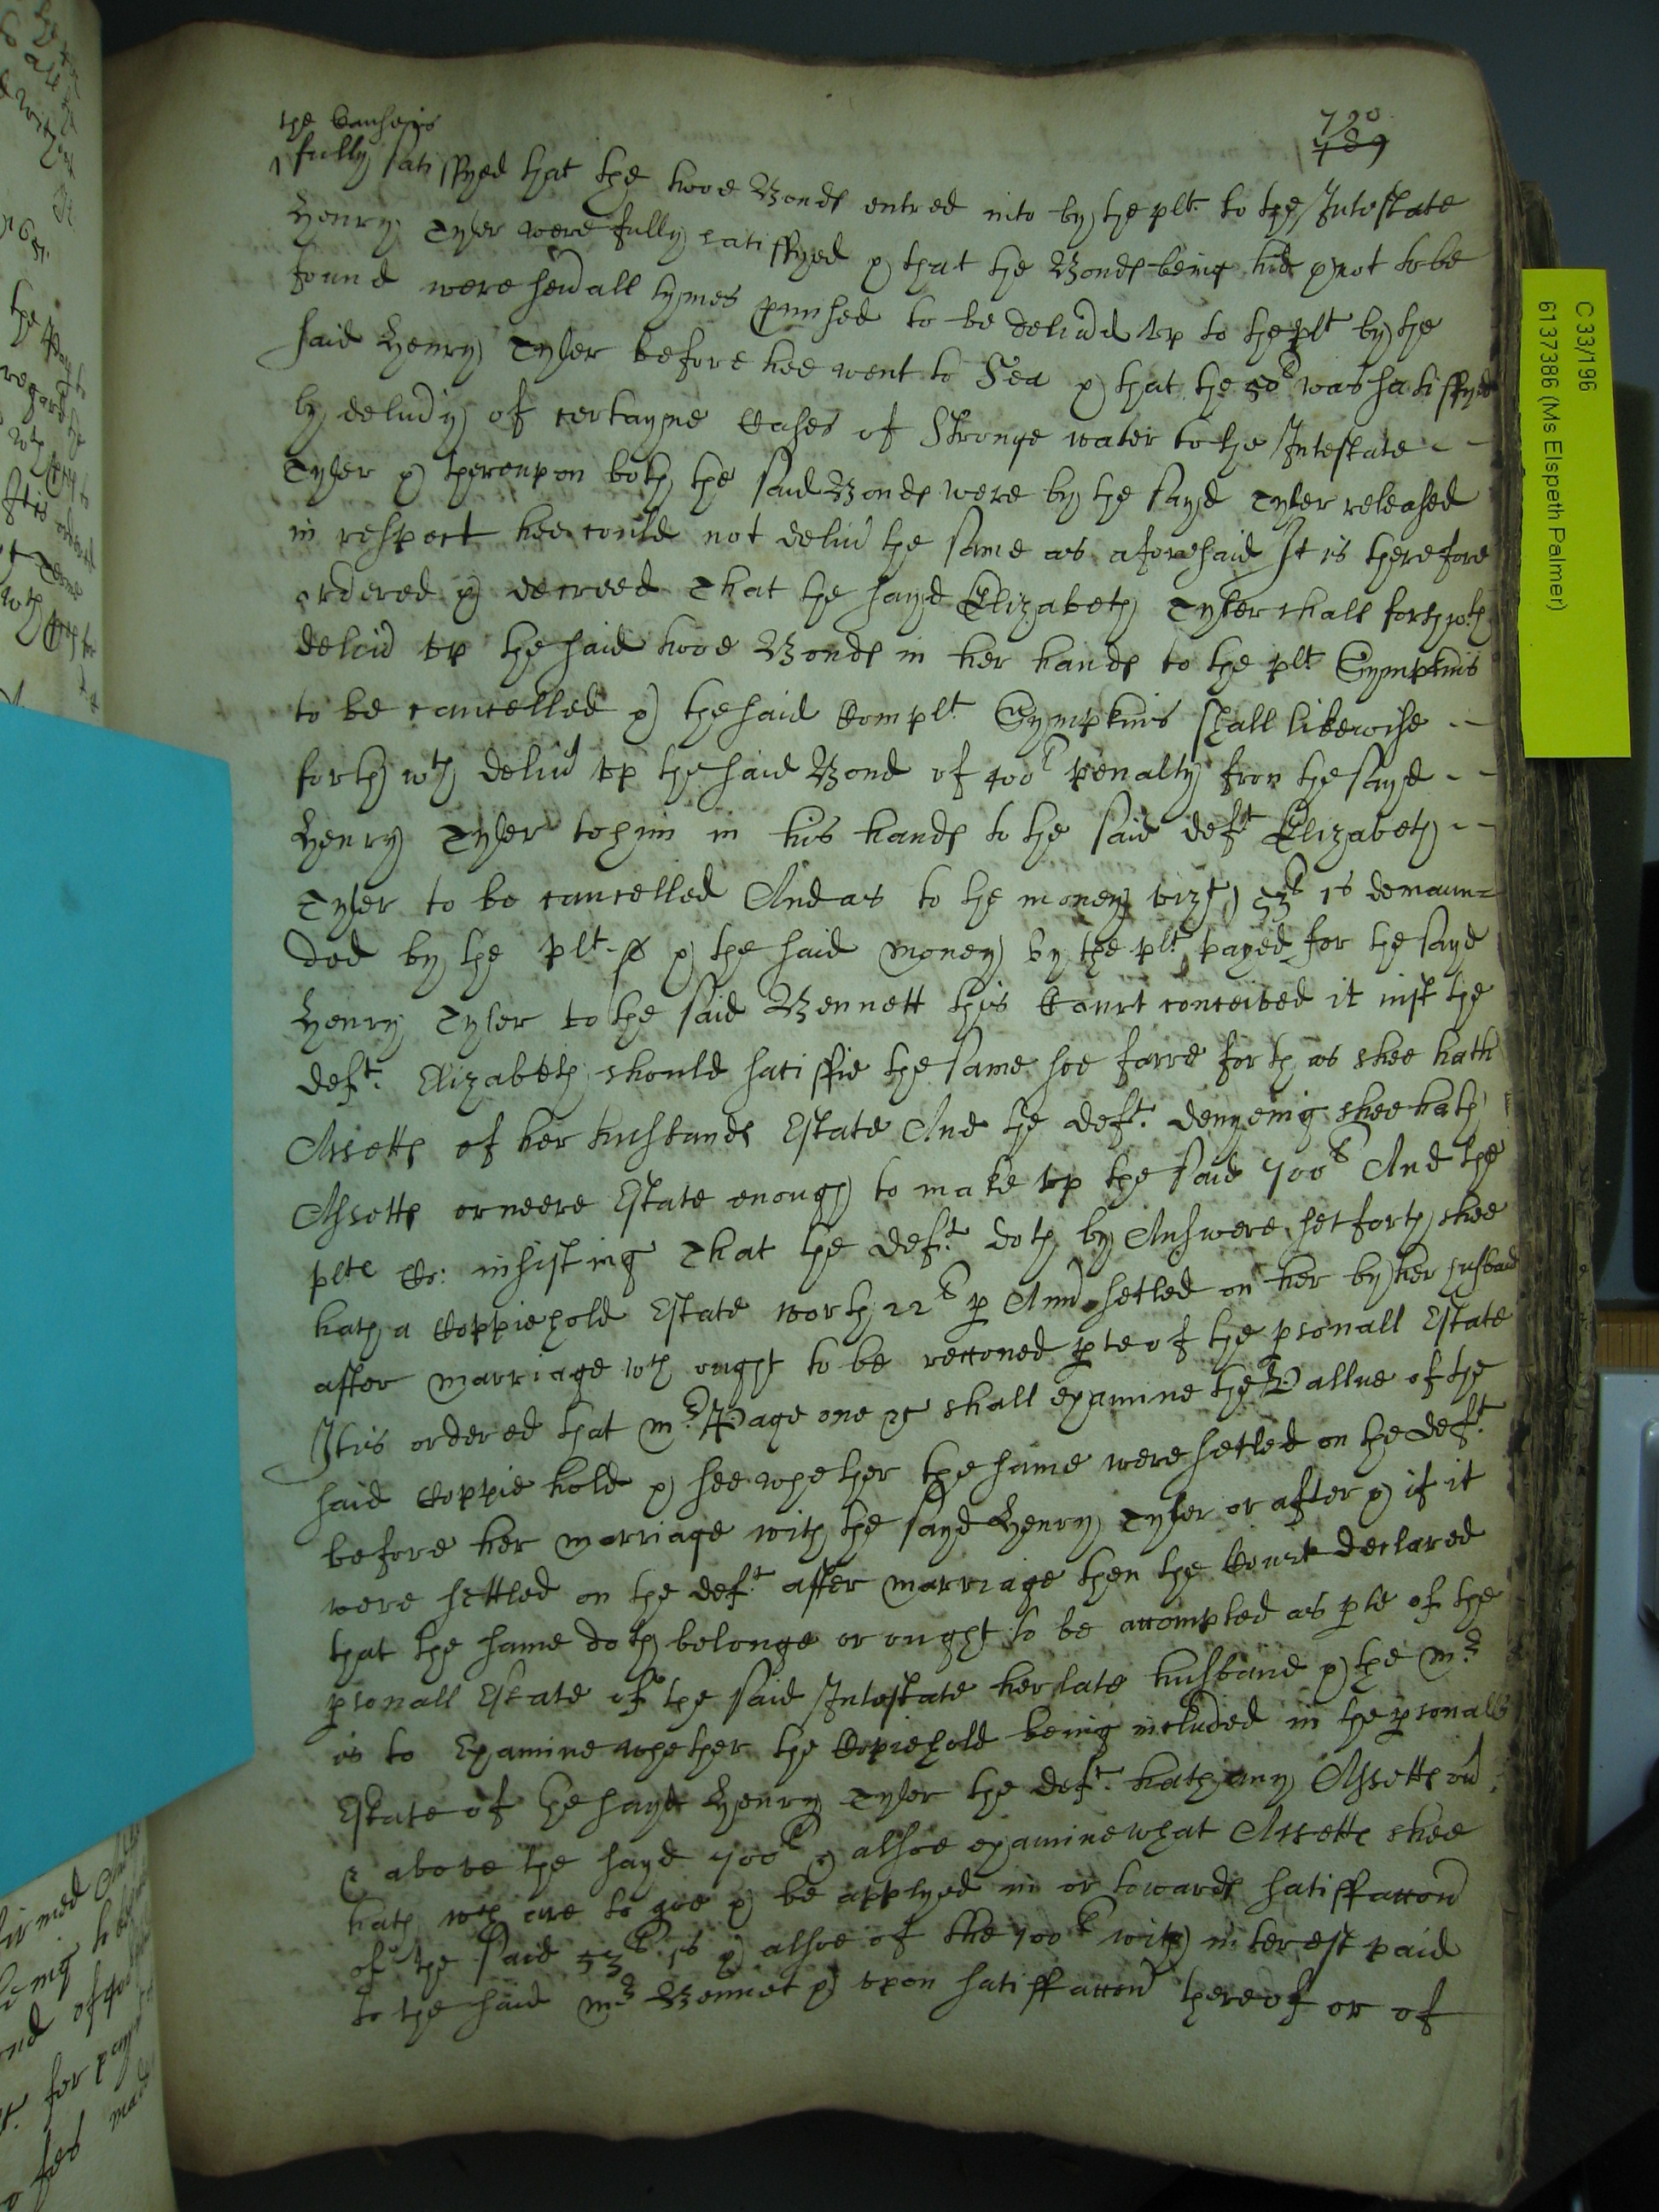 720
789
the
fully satisffyed that the twoe Bonds entred into by the plt to the Intestate
Henry Tyler were fully satisffyed & that the Bonds being hid & not to be
found were sev'all tymes p'mised to be deliv'd up to the plt by the
said Henry Tyler before hee went to Sea & that the 50l was satisffyed
by delivy of certayne Cases of Stronge water to the Intestate - -
Tyler & thereupon both the said Bonds were by the sayd Tyler released
in respect hee could not deliv' the same as aforesaid It is therefore
ordered & decreed That the sayd Elizabeth Tyler shall forthwth
deliv' up the said twoe Bonds in her hands to the plt Sympkins
to be cancelled & the said Complt Sympkins shall likewise - -
forth wth deliv' up the said Bond of 400l penalty from the sayd - -
Henry Tyler to him in his hands to the said deft Elizabeth - -
Tyler to be cancelled And as to the money vizt 53l 1s demaun=
ded by the plt & the said money by the plt payed for the sayd
Henry Tyler to the said Bennett this Court conceived it iust the
deft. Elizabeth should satisffie the same soe farre forth as shee hath
Assetts of her husbands Estate And the deft. denyeing shee hath
Assetts or neere Estate enough to make up the said 700l And the
plte Co: insisting That the deft. doth by Answere set forth shee
hath a Coppiehold Estate worth 22l p Ann' setled on her by her husband
after marriage wch ought to be reccned pte of the psonall Estate
It is ordered that mr Page one &c shall examine the Vallue of the
said Coppie hold & see whether the same were setled on the deft.
before her marriage with the sayd Henry Tyler or after & if it
were settled on the deft. after marriage then the Court declared
that the same doth belonge or ought to be accompted as pte of the
psonall Estate of the said Intestate her late husband & the mr
is to Examine whether the Copiehold being included in the psonall
Estate of the sayd Henry Tyler the deft. hath any Assetts ov'
& above the sayd 700l & alsoe examine what Assetts shee
hath wch are to goe & be applyed in or towards satisffaccon
of the said 53l 1s & alsoe of the 100l with interest paid
to the said mr Bennet & upon satisffaccon thereof or of
C 33/196
6137386 (Ms Elspeth Palmer)